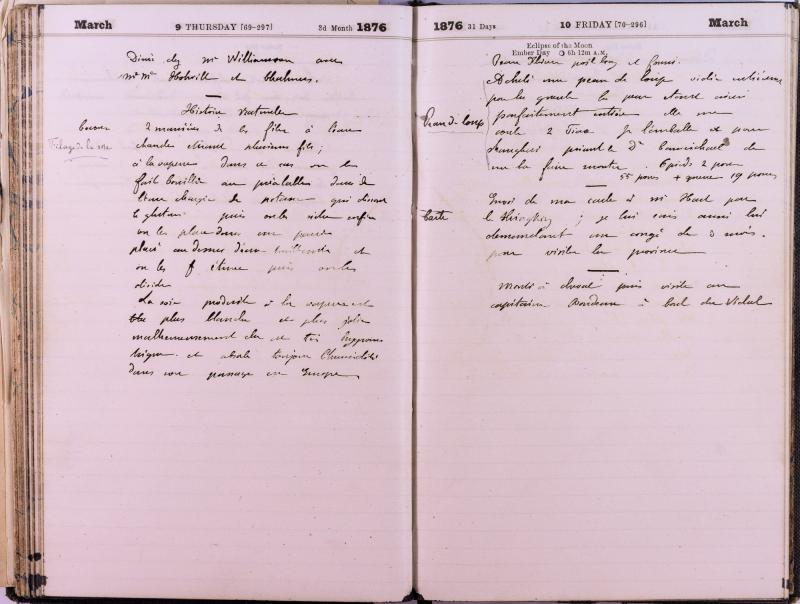 March
9 THURSDAY [69-297]
3d Month 1876
Diné chez Mr Williamson avec
Mr Mr et
Histoire naturelle
Cocons
Filage de la soie
2 manières de les filer à l'eau
chaude suivant plusieurs fils ;
à la vapeur dans ce cas on les
fait bouillir au préalable dans de
l'eau chargée de potasse qui dissout
le gluten puis on les vide enfin
on les place dans un panier
placé au dessus d'eau bouillante et
on les étuve puis on les
dévide
La soie produite à la vapeur est
plus blanche et plus jolie
malheureusement elle est très hygromé
trique et absorbe toujours l'humidité
dans son passage en Europe
1876 31 Days
10 FRIDAY [70-296]
March
Eclipse of the Moon
Ember Day 6h 12m A.M.
poil long et fourni.
Acheté une peau de loup
Peau de loup
par la gueule la peau étant ainsi
parfaitement entière elle me
coute 2 Je l'emballe et pour
Shanghai priant le Dr de
me la faire monter. 6 pieds 2 pouces
55 pouces + queue 19 pouces
Carte
Envoi de ma carte à Mr Hart par
le ; je lui écris aussi lui
demandant un congé de 3 mois.
pour visiter la province
Monté à cheval puis visite au
capitaine à bord du